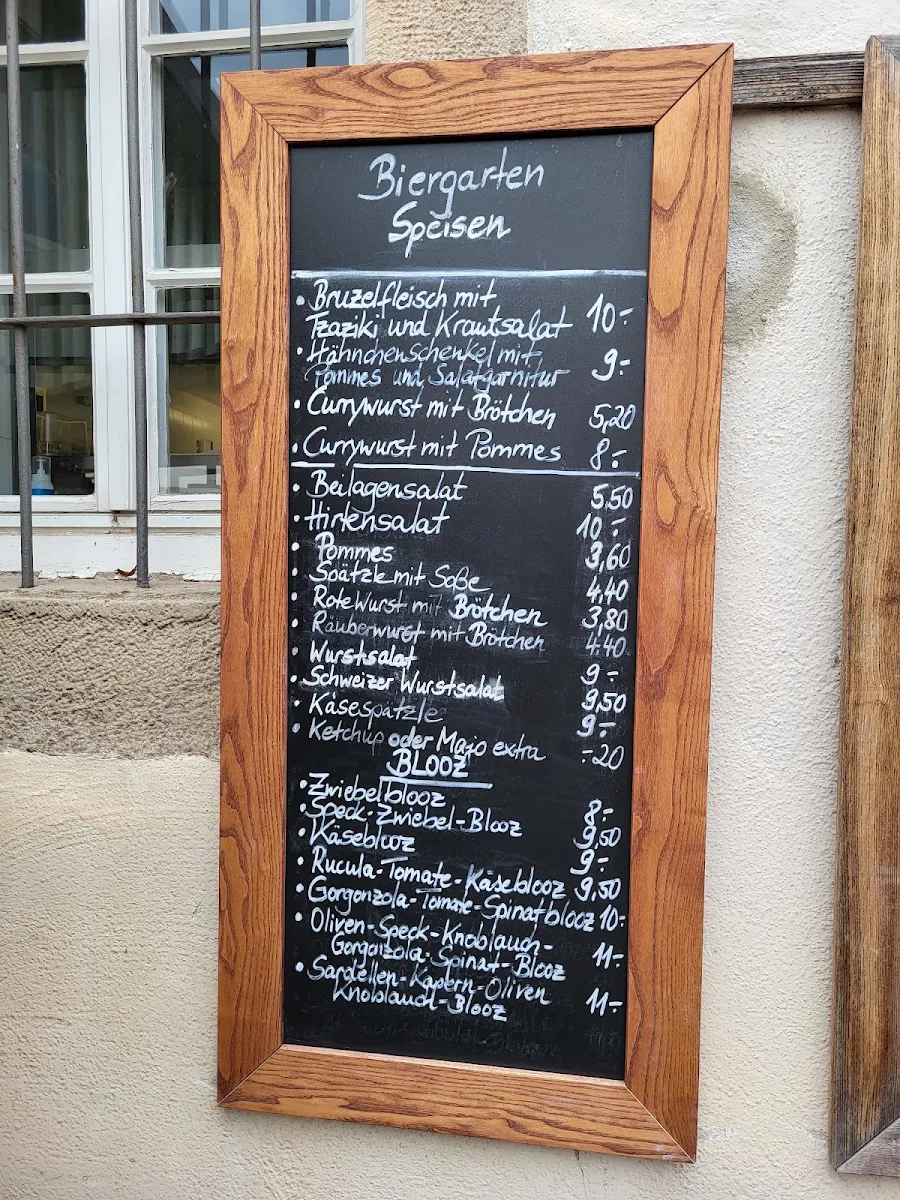 Biergarten
Speisen
• Bruzelfleisch mit
Tzaziki und Krautsalat 10.-
• Hähnchenschenkel mit
Pommes und Salatgarnitur 9.-
• Currywurst mit Brötchen 5,20
• Currywurst mit Pommes 8.-
• Beilagensalat 5,50
• Hirtensalat 10.-
• Pommes 3,60
• Spätzle mit Soße 4,40
• Rote Wurst mit Brötchen 3,80
• Räuberwurst mit Brötchen 4.40
• Wurstsalat 9.-
• Schweizer Wurstsalat 9,50
• Käsespätzle 9.-
• Ketchup oder Majo extra -.20
BLOOZ
• Zwiebelblooz 8.-
• Speck-Zwiebel-Blooz 9,50
• Käseblooz 9.-
• Rucula-Tomate-Käseblooz 9,50
• Gorgonzola-Tomate-Spinatblooz 10.-
• Oliven-Speck-Knoblauch-
Gorgonzola-Spinat-Blooz 11.-
• Sardellen-Kapern-Oliven
Knoblauch-Blooz 11.-